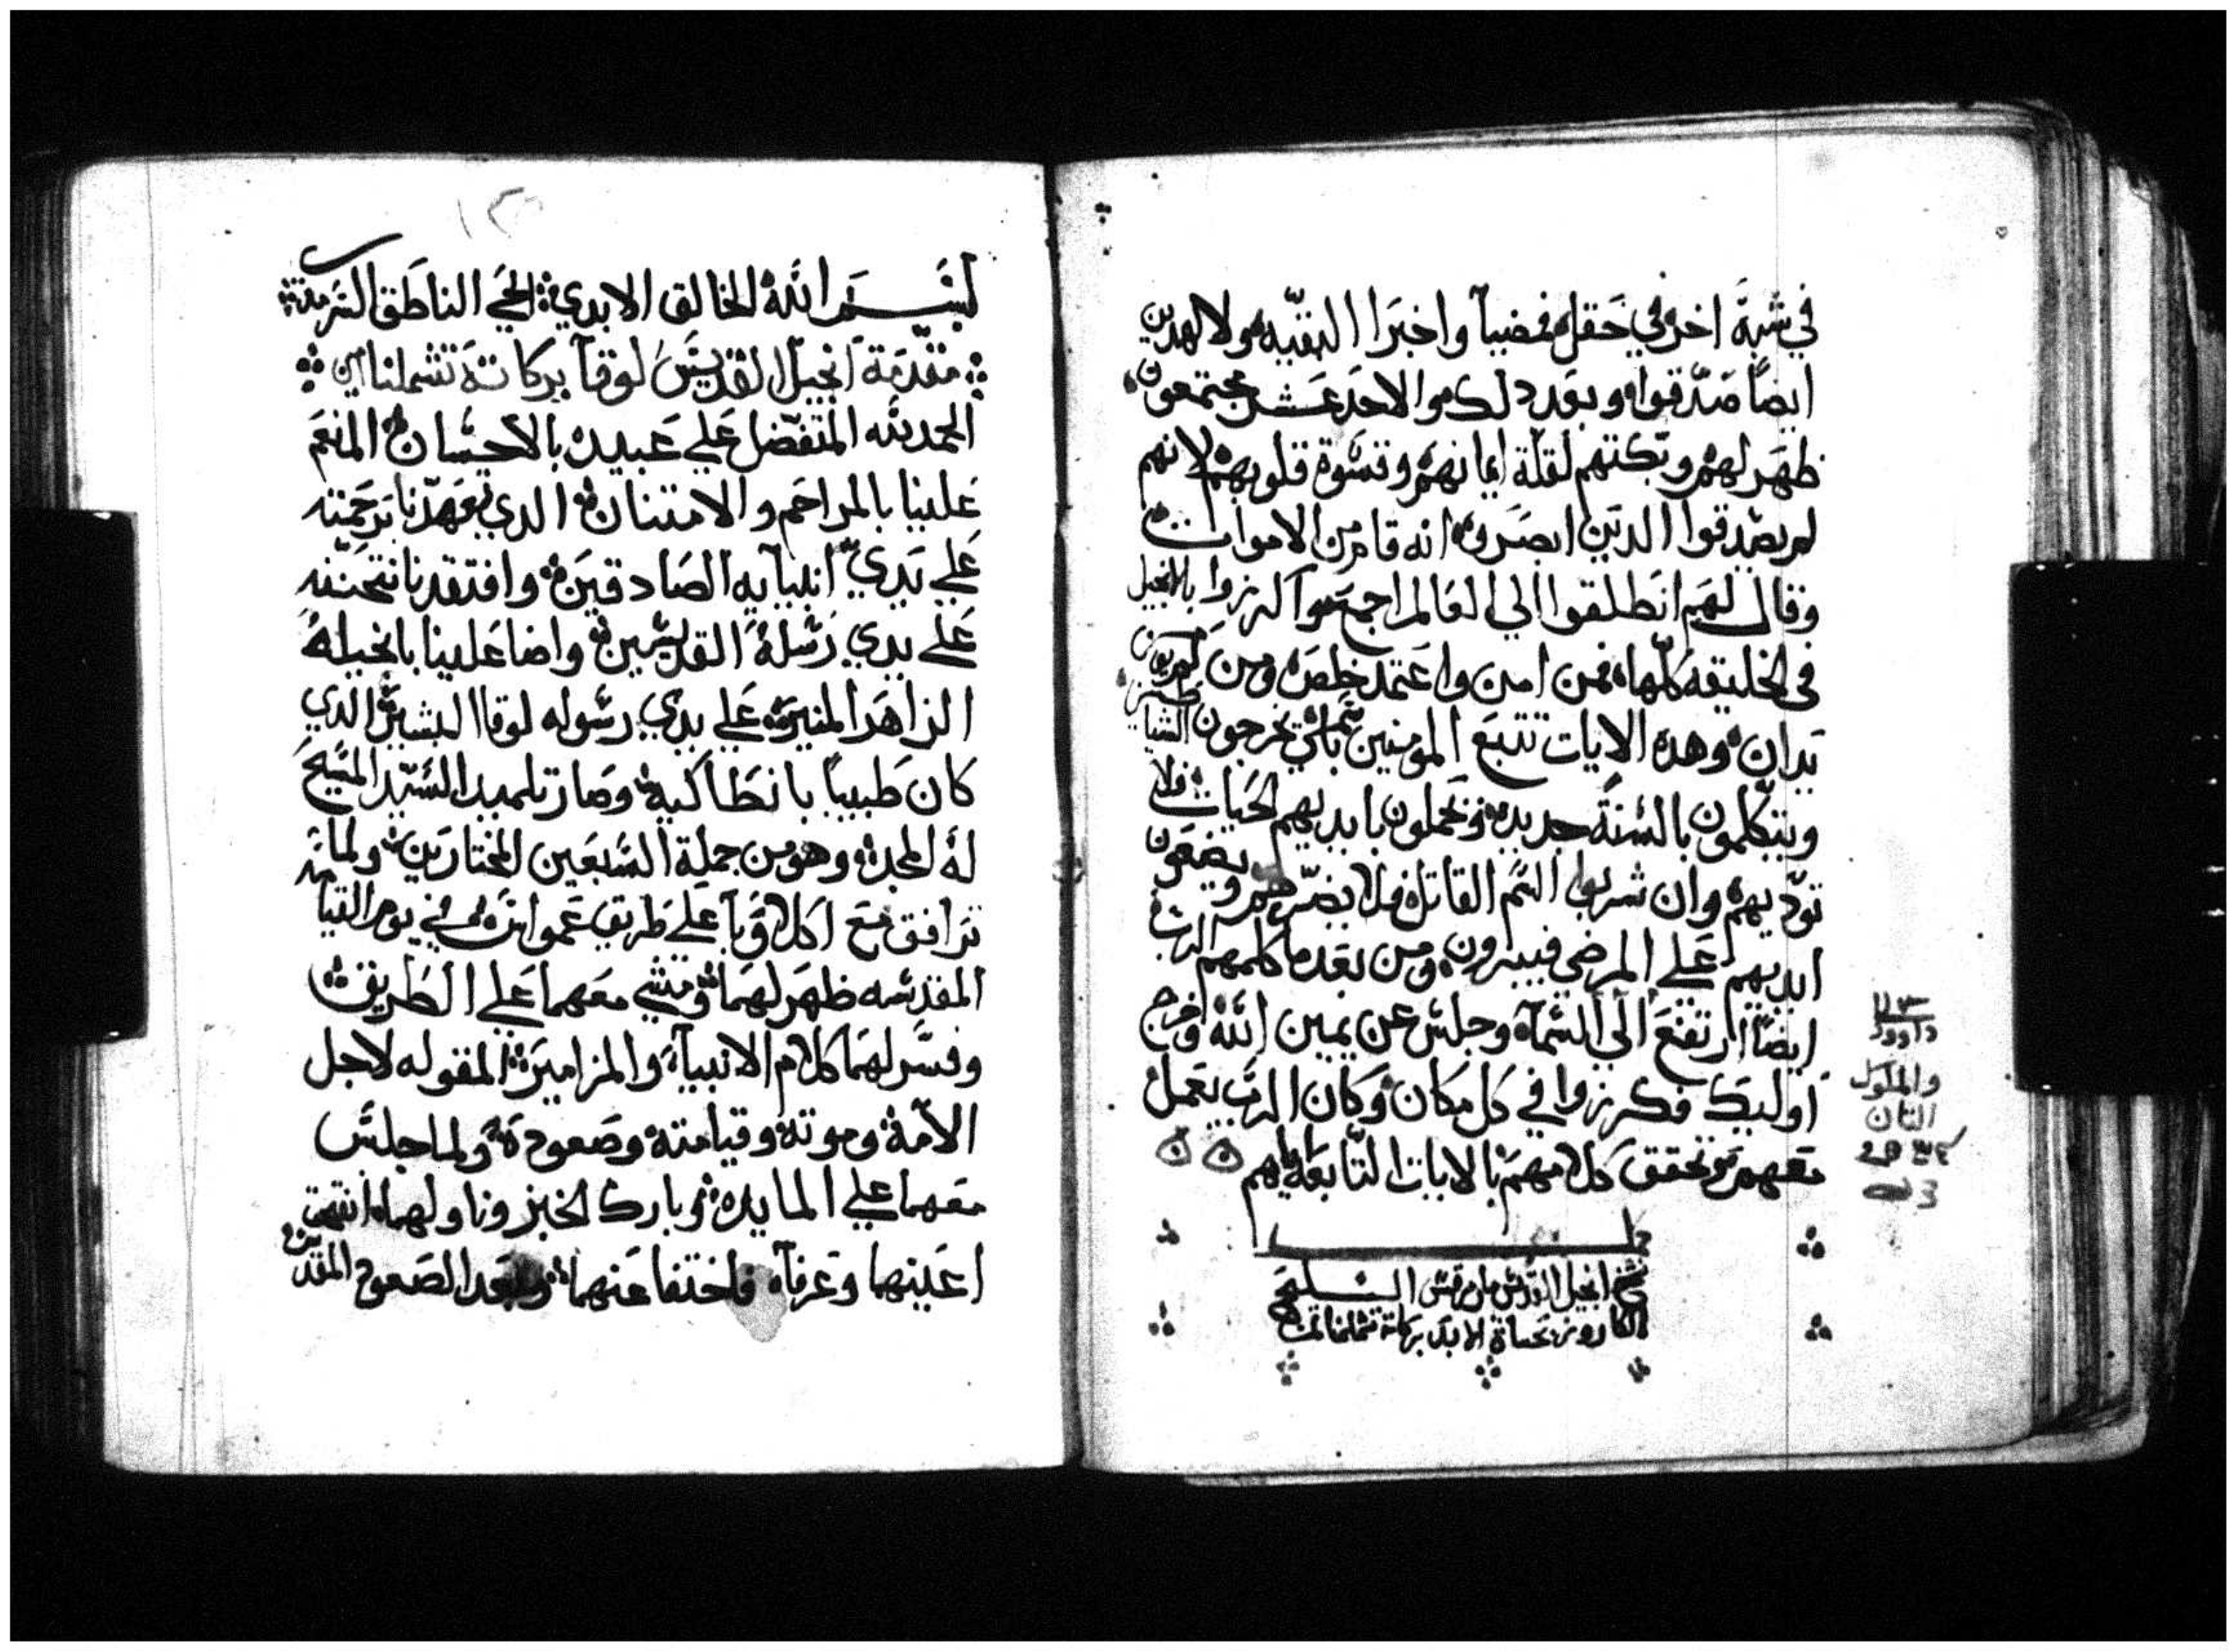 في شبة اخر في حقل فمضيا واخبرا البقيه ولا لهدين
ايضًا صدقوا وبعد دلك والاحد عشر مجتمعون
ظهر لهم وبكتهم لقلة ايمانهم وقسوة قلوبهم لانهم
لم يصدقوا الدين ابصروه انه قام من الاموات
وقال لهم انطلقوا الي العالم اجمع واكرزوا بالانجيل
في الخليقه كلها فمن امن واعتمد خلص ومن لم يومن
يدان وهده الايات تتبع المومنين باسمي يخرجون الشياطين
ويتكلمون بالسنة جديده ويحملون بايديهم الحيات فلا
توديهم وان شربوا السم القاتل فلا يضرهم ويضعون
ايديهم علي المرضي فيبرون ومن بعد ما كلمهم الرب
ايضًا ارتفع الي السماء وجلس عن يمين الله وخرج
اوليك فكرزوا في كل مكان وكان الرب يعمل
معهم وتحقق كلامهم بالايات التابعة اياهم
انجيل القديس مار مرقس
الكاروز بحياة الابد بركاته تشملنا
داوود
والملوك
التان
بسم الله الخالق الابدي الحي الناطق السرمدي
مقدمة انجيل القديس لوقا بركاته تشملنا امين
الحمد لله المتفضل علي عبيده بالاحسان المنعم
علينا بالمراحم والامتنان الدي تعهدنا برحمته
علي يدي انبيايه الصادقين وافتقدنا بتحننه
علي يدي رسله القديسين واضا علينا بانجيله
الزاهر المنير علي يدي رسوله لوقا البشير الدي
كان طبيبًا بانطاكيه وصار تلميد السيد المسيح
له المجد وهو من جملة السبعين المختارين ولما
ترافق مع اكلاوبا علي طريق عمواس في يوم القيامه
المقدسه ظهر لهما ومشي معهما علي الطريق
وفسر لهما كلام الانبياء والمزامير المقوله لاجل
الامه وموته وقيامته وصعوده ولما جلس
معهما علي المايده وبارك الخبز وناولهما انفتحت
اعينهما وعرفاه فاختفا عنهما وبعد الصعود المقدس